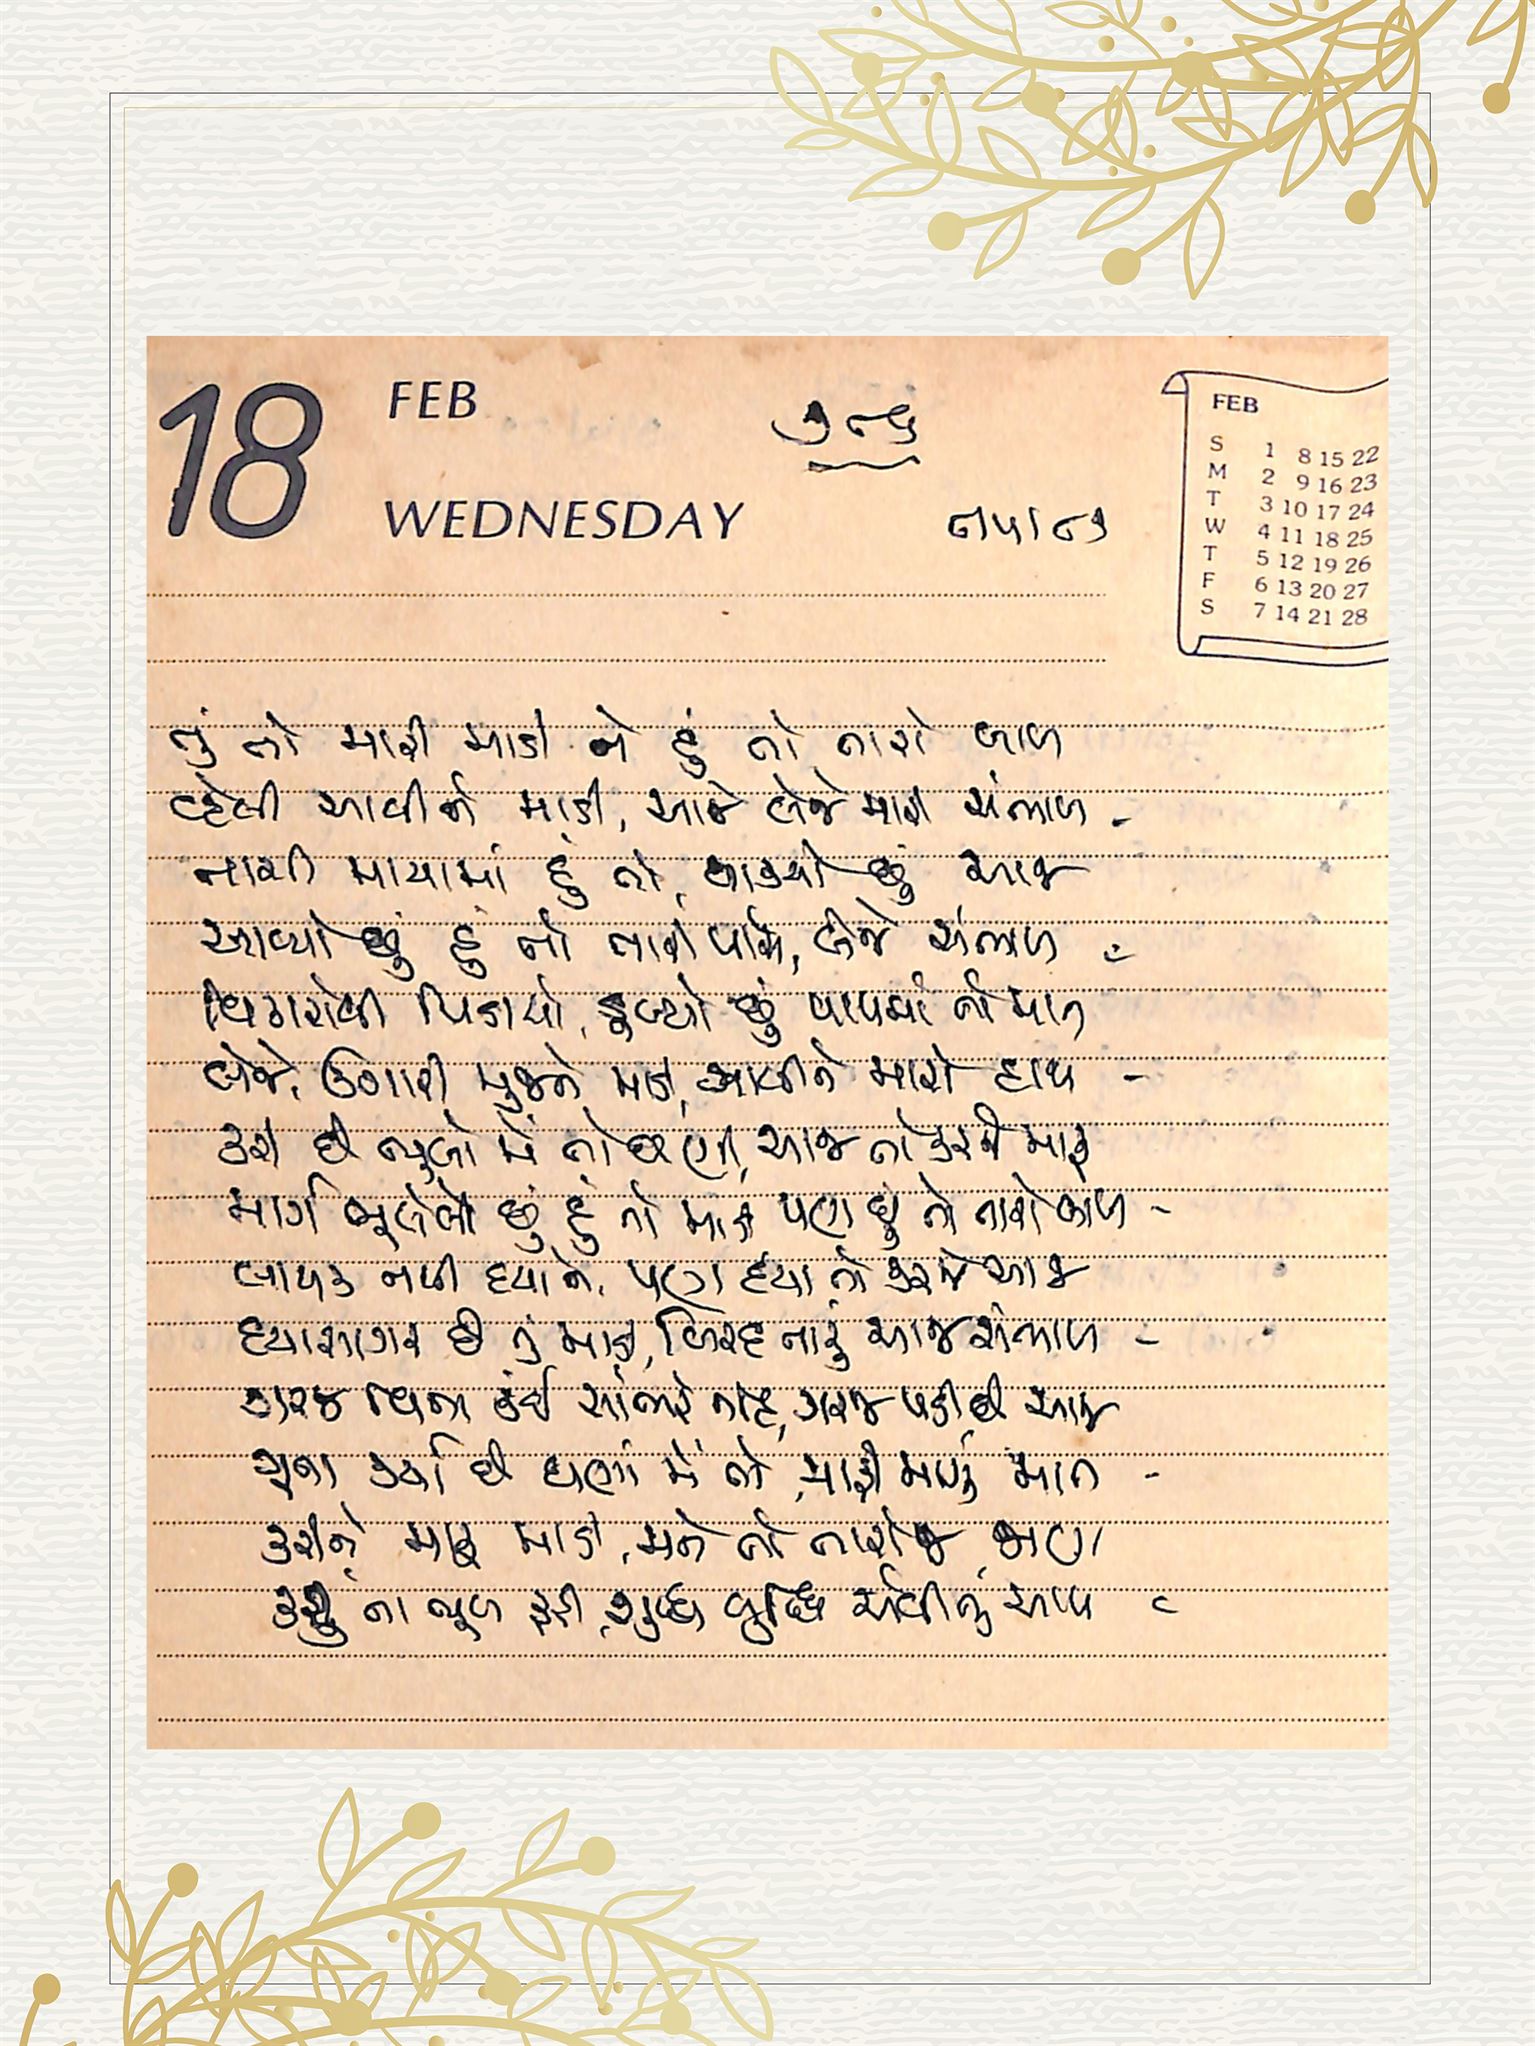 18
FEB
WEDNESDAY
૭૯૬
૮/૫/૮૭
FEB
S 1 8 15 22
M 2 9 16 23
T 3 10 17 24
W 4 11 18 25
T 5 12 19 26
F 6 13 20 27
S 7 14 21 28
તું તો મારી માડી ને હું તો તારો બાળ
વ્હેલી આવીને માડી, આજે લેજે મારી સંભાળ -
તારી માયામાં હું તો, થાક્યો છું આજ
આવ્યો છું હું તો તારી પાસે, લેજે સંભાળ -
વિકારોથી પિડાયો, ડૂબ્યો છું પાપમાં તો માત
લેજે, ઉગારી મુજને માડી, ઝાલીને મારો હાથ -
કરી છે ભૂલો મેં તો ઘણી, આજ તો કરજે માફ
માર્ગ ભૂલેલો છું હું તો માડી પણ છું તો તારો બાળ -
લાયક નથી દયાને, પણ દયા તો કરજે આજ
દયાસાગર છે તું માડી, બિરદ તારું આજ સંભાળ -
ગરજ વિના કંઈ સાંભરે નહિ, ગરજ પડી છે આજ
ગુના કર્યા છે ઘણાં મેં તો, માફી માગું માત -
કરીને માફ માડી, મને તો તારોજ જાણ
કરું ના ભૂલ ફરી, શુદ્ધ બુદ્ધિ એવી તું આપ -